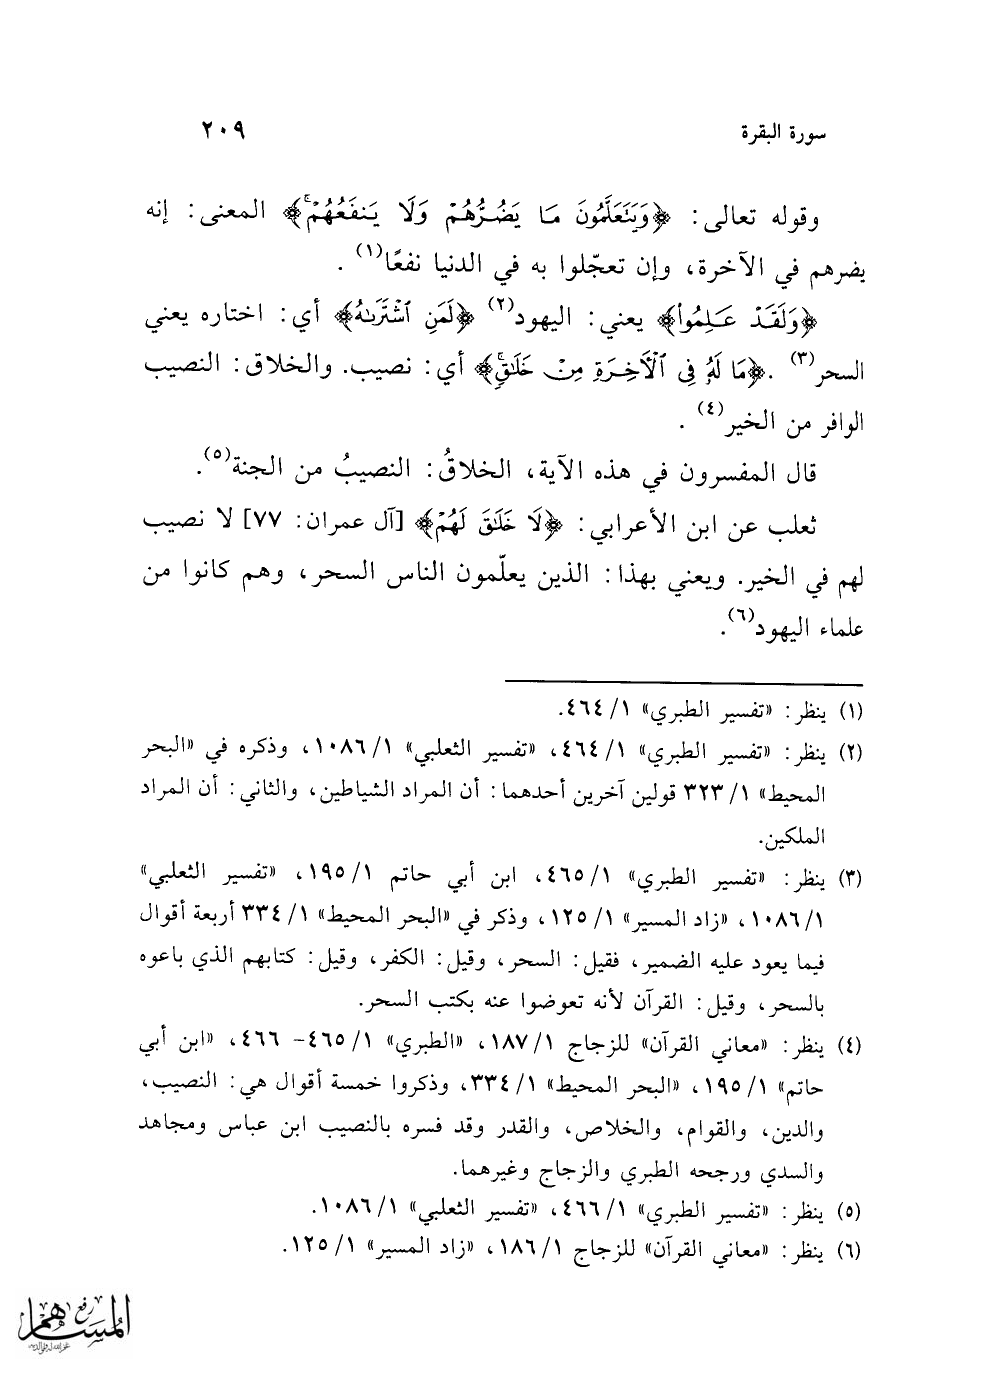 سورة البقرة ٢٠٩
وقوله تعالى: ﴿وَيَتَعَلَّمُونَ مَا يَضُرُّهُمْ وَلَا يَنفَعُهُمْۚ﴾ المعنى: إنه
يضرهم في الآخرة، وإن تعجّلوا به في الدنيا نفعًا(١) .
﴿وَلَقَدْ عَلِمُوا۟﴾ يعني: اليهود(٢) ﴿لَمَنِ ٱشْتَرَىٰهُ﴾ أي: اختاره يعني
السحر(٣) .﴿مَا لَهُۥ فِى ٱلْـَٔاخِرَةِ مِنْ خَلَـٰقٍۚ﴾ أي: نصيب. والخلاق: النصيب
الوافر من الخير(٤) .
قال المفسرون في هذه الآية، الخلاقُ: النصيبُ من الجنة(٥).
ثعلب عن ابن الأعرابي: ﴿لَا خَلَـٰقَ لَهُمْ﴾ [آل عمران: ٧٧] لا نصيب
لهم في الخير. ويعني بهذا: الذين يعلّمون الناس السحر، وهم كانوا من
علماء اليهود(٦).
(١) ينظر: «تفسير الطبري» ١/ ٤٦٤.
(٢) ينظر: «تفسير الطبري» ١/ ٤٦٤، «تفسير الثعلبي» ١/ ١٠٨٦، وذكره في «البحر
المحيط» ١/ ٣٢٣ قولين آخرين أحدهما: أن المراد الشياطين، والثاني: أن المراد
الملكين.
(٣) ينظر: «تفسير الطبري» ١/ ٤٦٥، ابن أبي حاتم ١/ ١٩٥، «تفسير الثعلبي»
١/ ١٠٨٦، «زاد المسير» ١/ ١٢٥، وذكر في «البحر المحيط» ١/ ٣٣٤ أربعة أقوال
فيما يعود عليه الضمير، فقيل: السحر، وقيل: الكفر، وقيل: كتابهم الذي باعوه
بالسحر، وقيل: القرآن لأنه تعوضوا عنه بكتب السحر.
(٤) ينظر: «معاني القرآن» للزجاج ١/ ١٨٧، «الطبري» ١/ ٤٦٥- ٤٦٦، «ابن أبي
حاتم» ١/ ١٩٥، «البحر المحيط» ١/ ٣٣٤، وذكروا خمسة أقوال هي: النصيب،
والدين، والقوام، والخلاص، والقدر وقد فسره بالنصيب ابن عباس ومجاهد
والسدي ورجحه الطبري والزجاج وغيرهما.
(٥) ينظر: «تفسير الطبري» ١/ ٤٦٦، «تفسير الثعلبي» ١/ ١٠٨٦.
(٦) ينظر: «معاني القرآن» للزجاج ١/ ١٨٦، «زاد المسير» ١/ ١٢٥.
رفع
المساهم